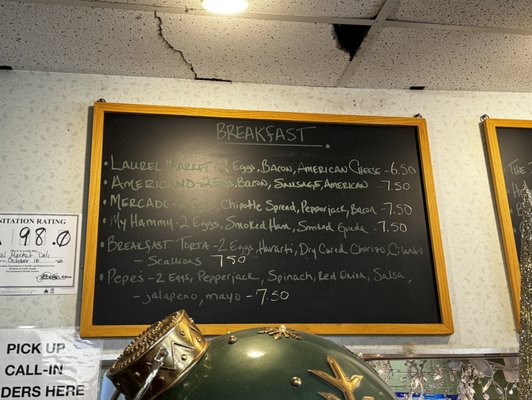 BREAKFAST
• LAUREL MARKET - 2 EGGS, BACON, AMERICAN CHEESE - 6.50
• AMERICANO - 2 EGG, BACON, SAUSAGE, AMERICAN - 7.50
• MERCADO - 2 EGGS, CHIPOTLE SPREAD, PEPPERJACK, BACON - 7.50
• MY HAMMY - 2 EGGS, SMOKED HAM, SMOKED GOUDA - 7.50
• BREAKFAST TORTA - 2 EGGS, HAVARTI, DRY CURED CHORIZO, CILANTRO
- SCALLIONS 7.50
• PEPE'S - 2 EGGS, PEPPERJACK, SPINACH, RED ONION, SALSA,
- JALAPENO, MAYO - 7.50
SANITATION RATING
A 98.0
Market Deli
October
PICK UP
CALL-IN
HERE
THE